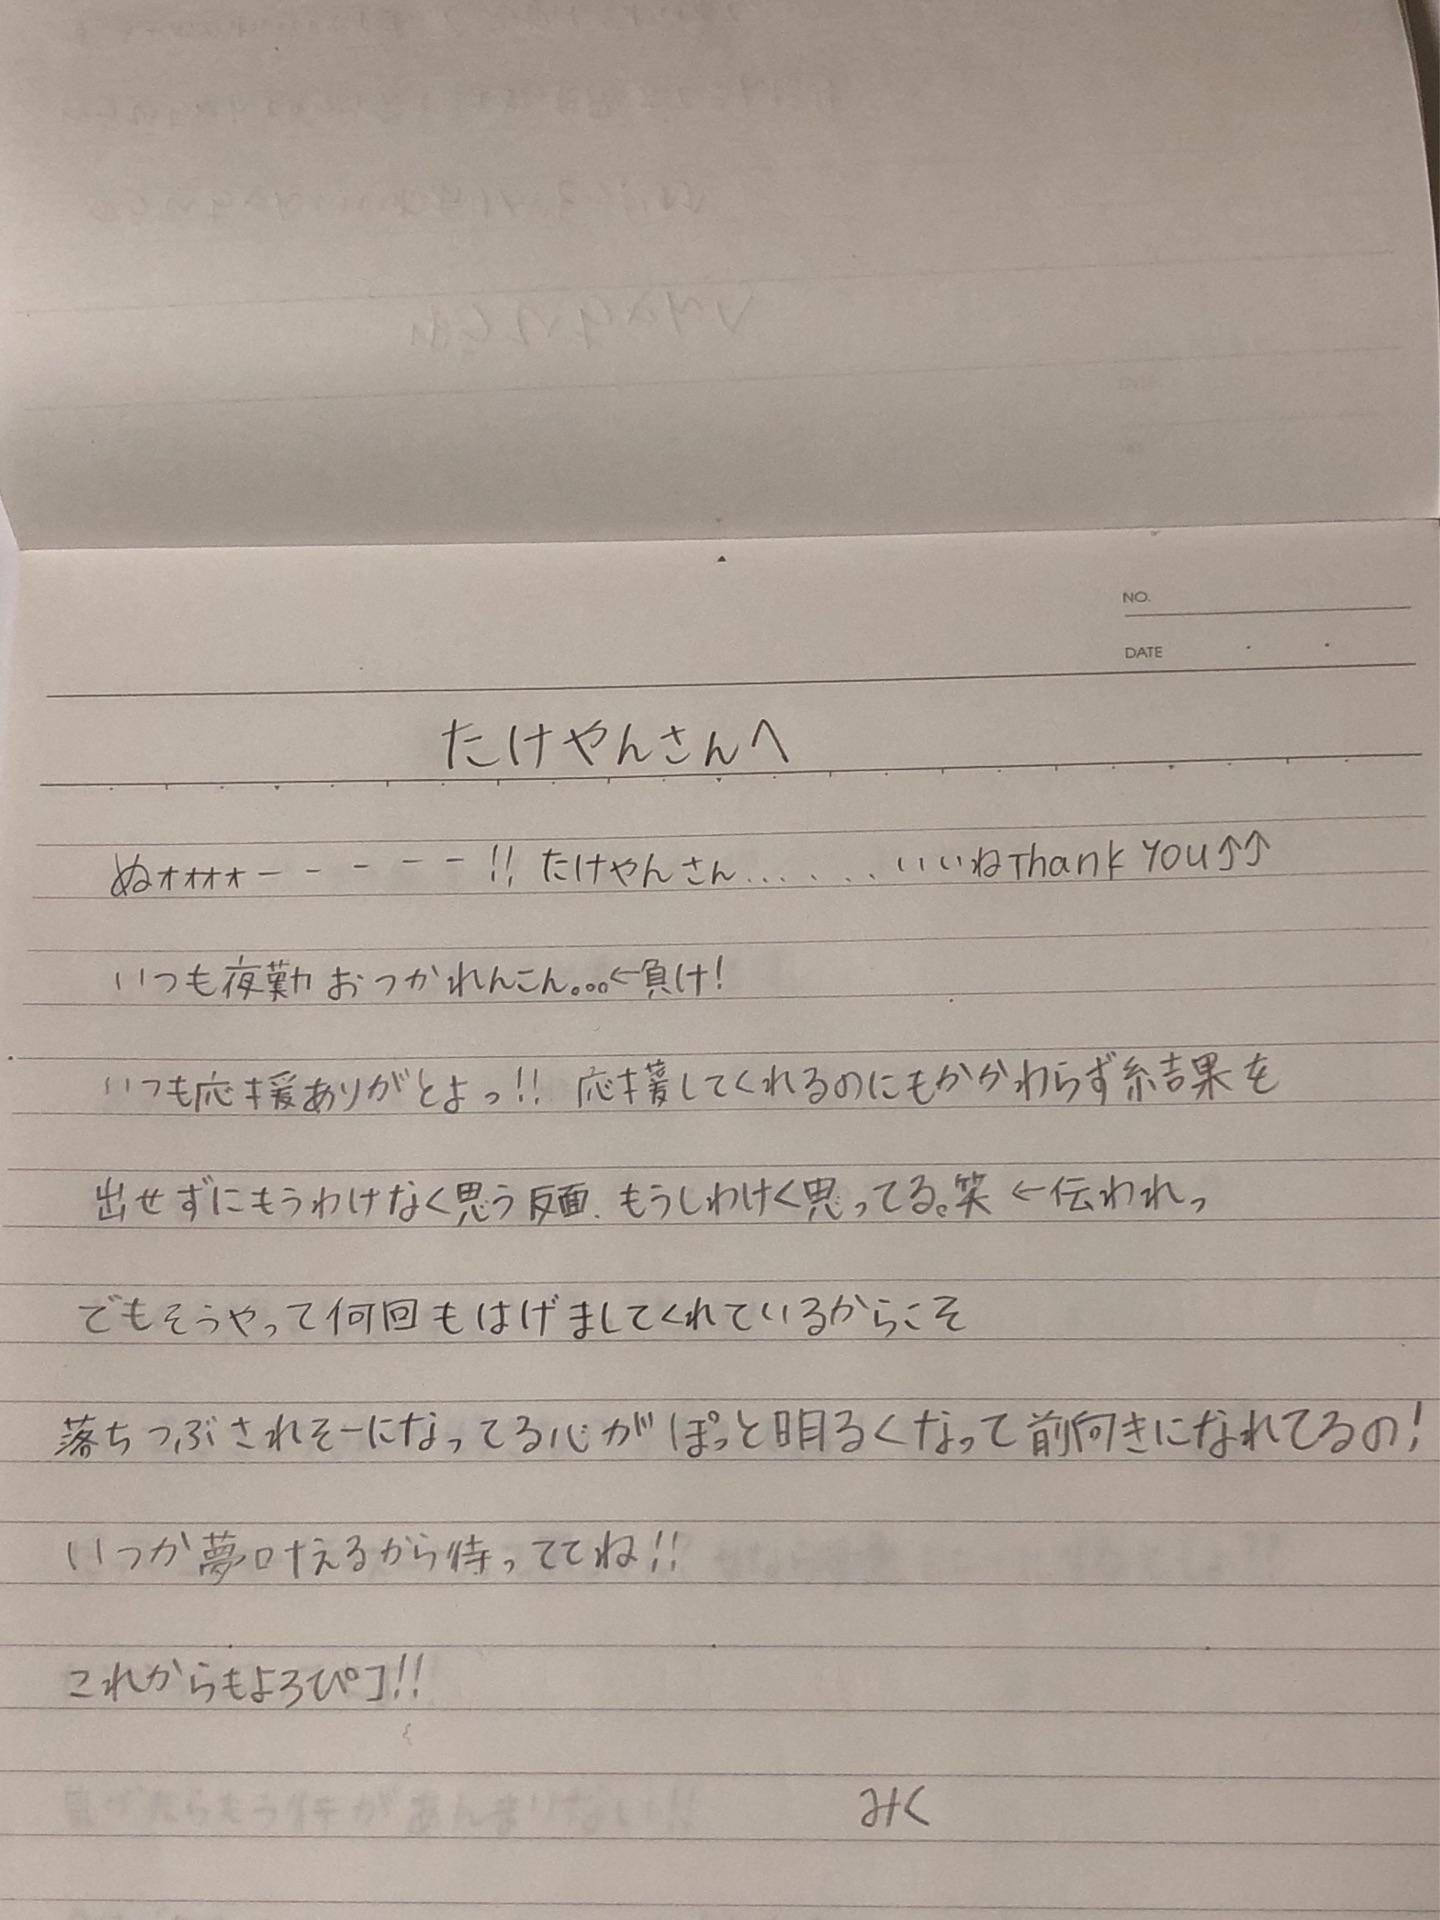 NO.
DATE
たけやんさんへ
ぬォォォォー - - - -!! たけやんさん.......いいねThank YOU↑↑
いつも夜勤おつかれんこん。。。←負け!
いつも応援ありがとよっ!! 応援してくれるのにもかかわらず結果を
出せずにもうわけなく思う反面、もうしわけく思ってる。笑 ←伝われっ
でもそうやって何回もはげましてくれているからこそ
落ちつぶされそーになってる心がぽっと明るくなって前向きになれてるの!
いつか夢叶えるから待っててね!!
これからもよろぴコ!!
みく